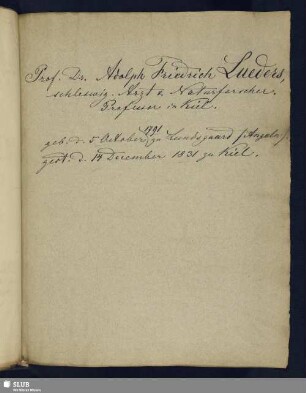 Prof. Dr. Adolph Friedrich Lueders,
schleswig. Arzt u. Naturforscher,
Professor in Kiel.
1791
geb. d. 5 October, zu Lundsgaard (Angeln).
gest. d. 19 December 1831 zu Kiel.
SLUB